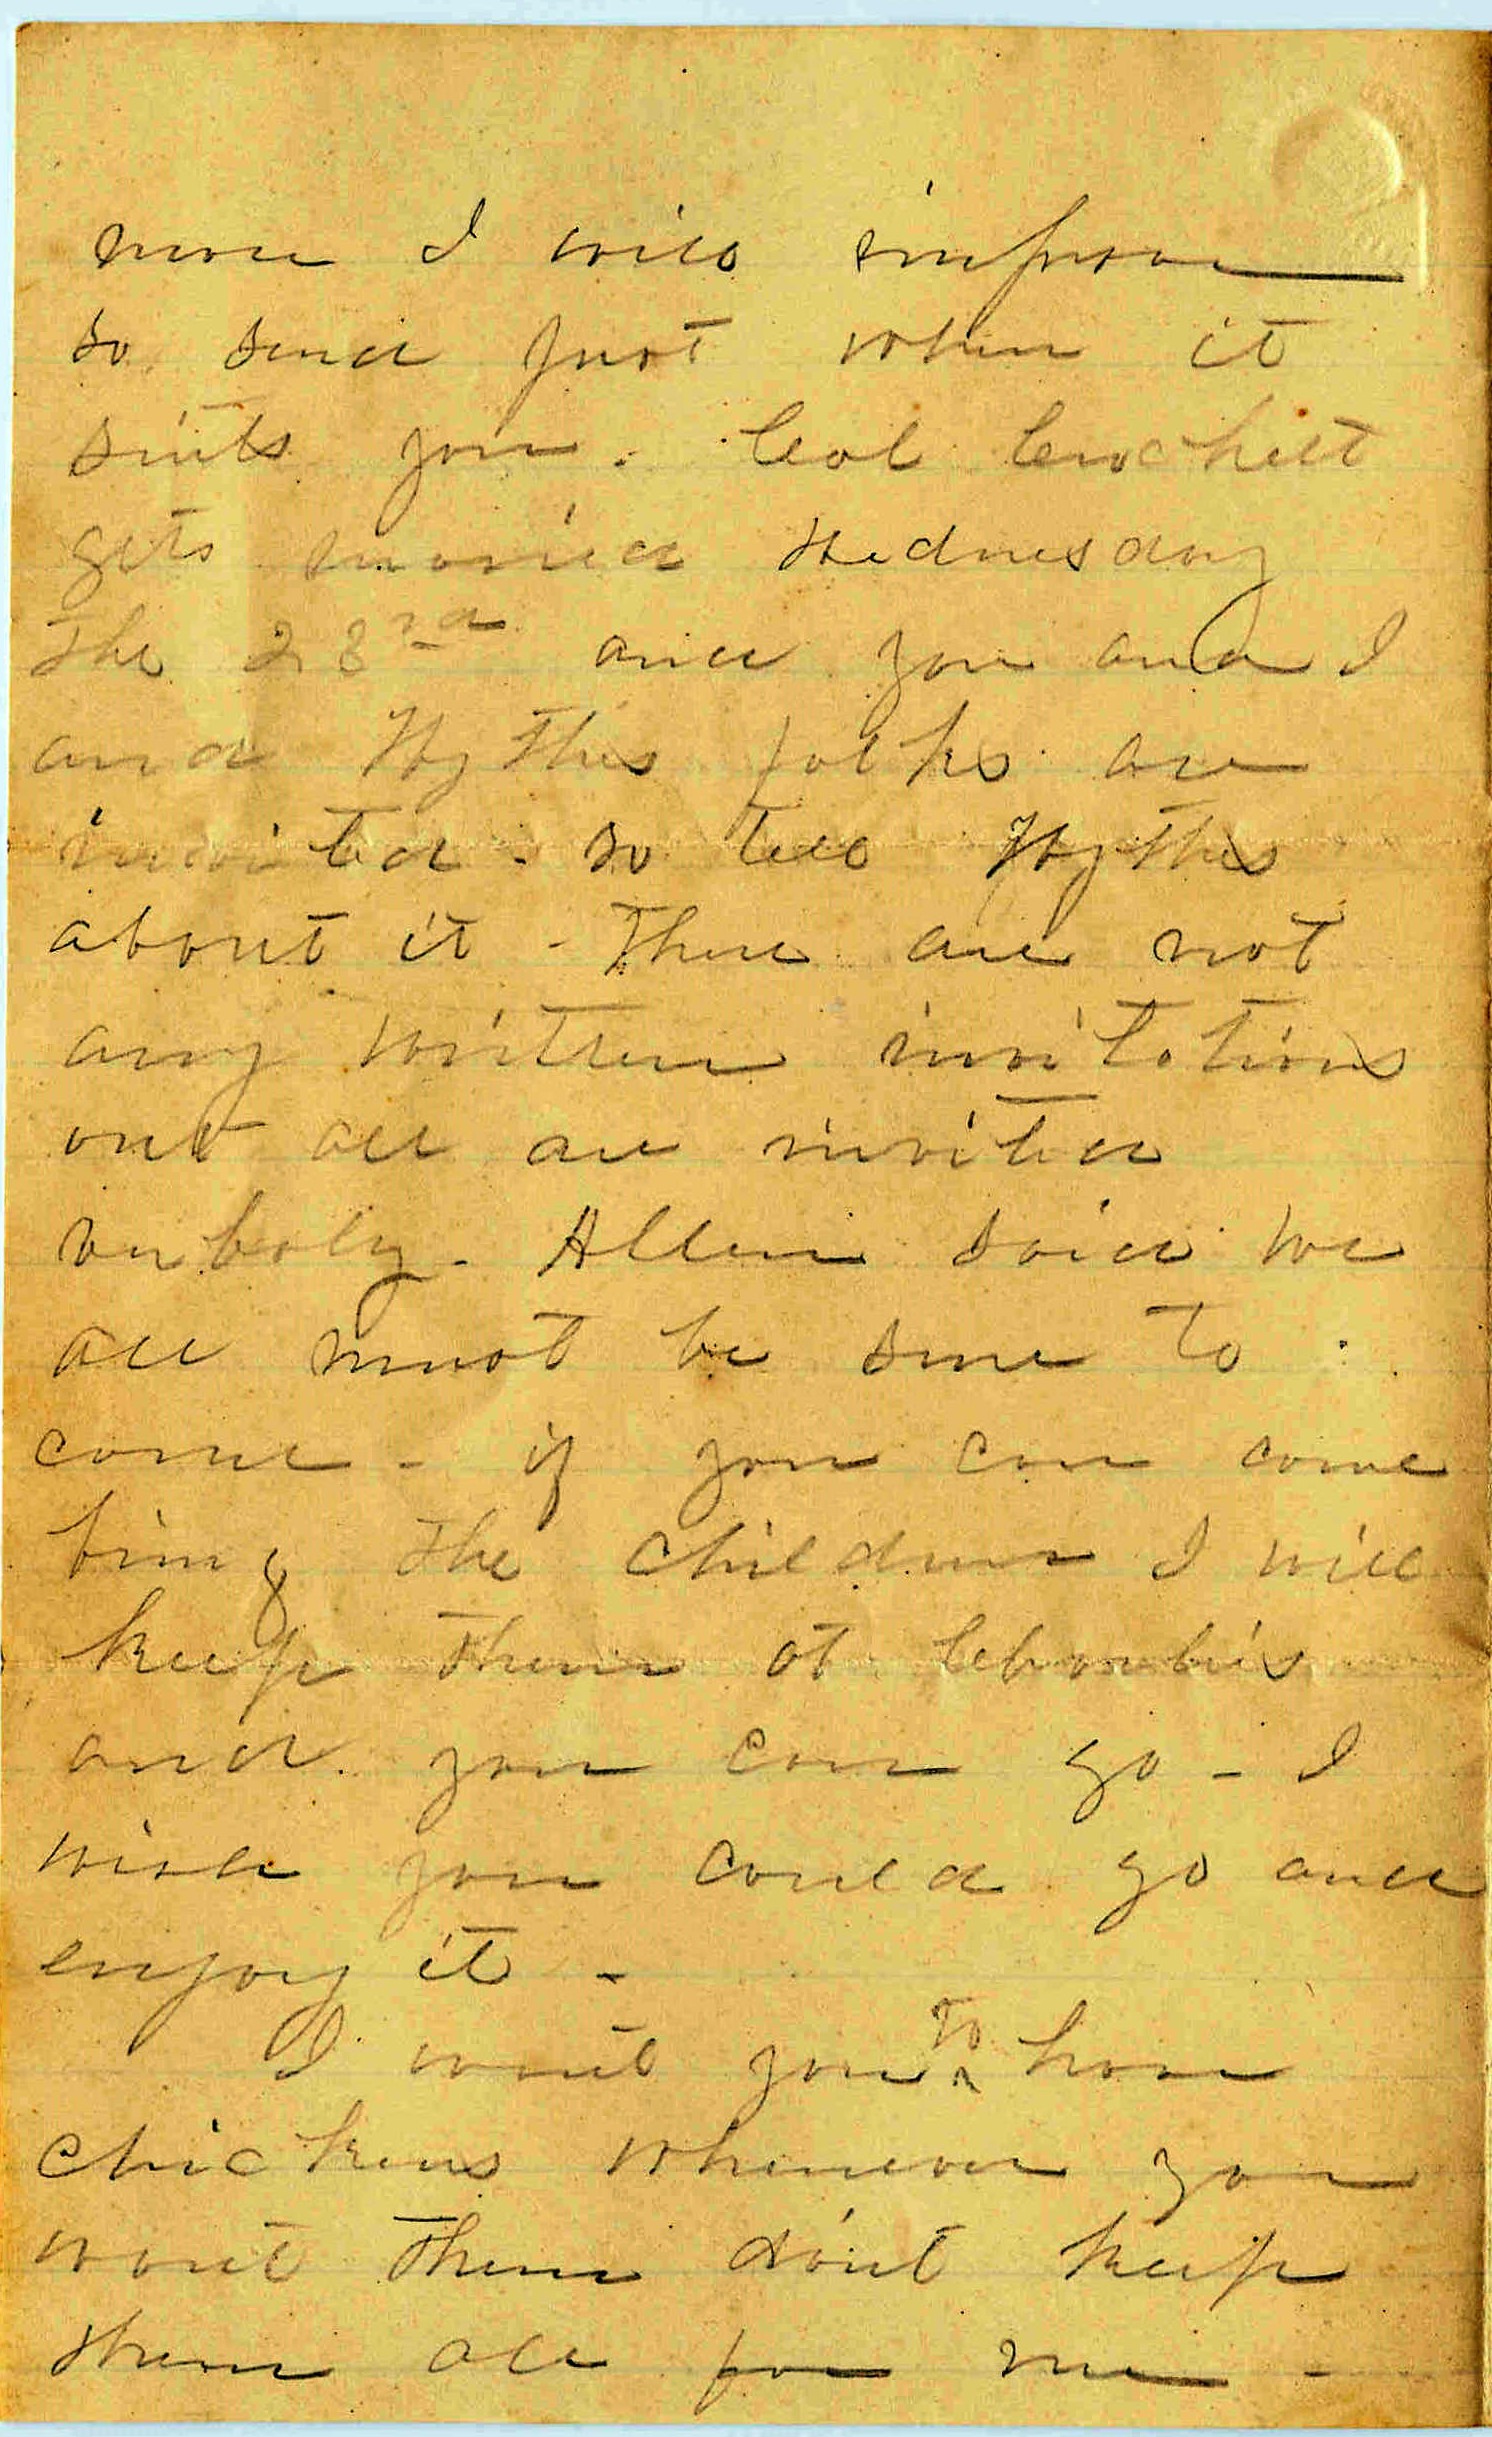 more I will improve
so send just when it
suits you. Col Crockett
gets married Wednesday
the 23rd and you and I
and folks are
invited - so tell
about it - There are not
any written invitations
out all are invited
verbaly - Allen said we
all must be sure to
come - if you can come
bring the children I will
keep them at
and you can go - I
wish you could go and
enjoy it -
I want you to have
chickens whenever you
want them don't keep
them all for me -